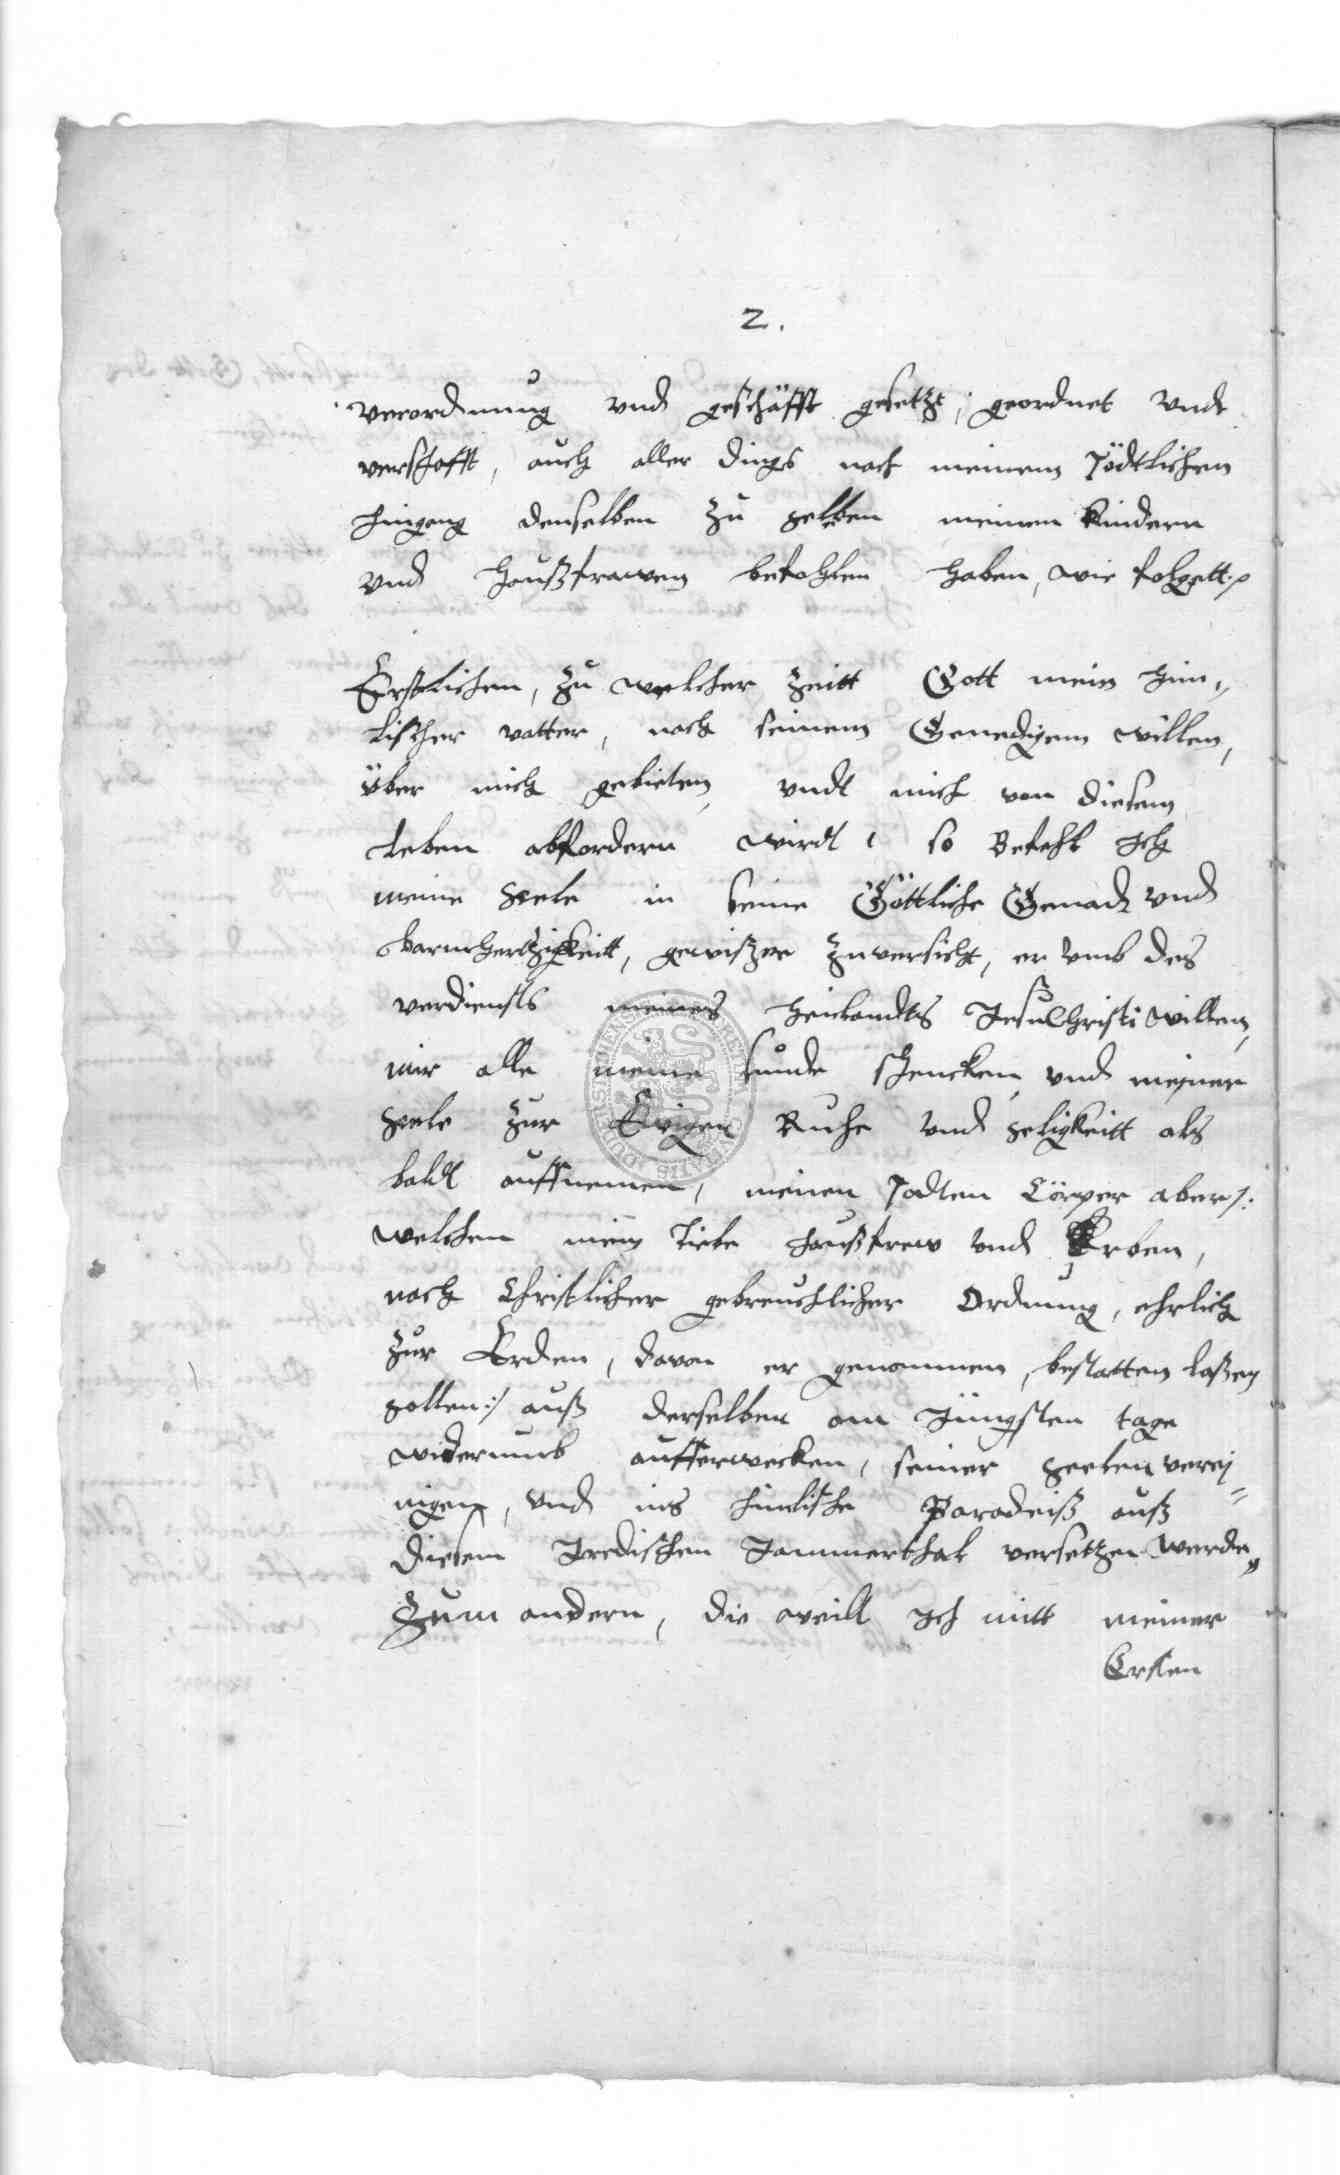 2.
verordnung vnd geschäfft gesetzt, geordnet vndt
verschafft, auch aller dings nach meinem Tödtlichen
hingang denselben zu halten meinen Kindern
vnd haußfrawen befohlen haben, wie folgett:
Erstlichen, zu welcher Zeitt Gott mein him„
lischer vatter, nach seinem Genedigem willen,
über mich gebieten, vndt mich von diesem
Leben abfordern wirdt, so Befehl Ich
meine Seele in seine Göttliche Genad vnd
barmhertzigkeitt, gewißer Zuversicht, er vmb des
verdiensts meines heilandts Jesu Christi willen,
mir alle meine sünde schencken, vnd meiner
Seele zur Ewigen Ruhe vnd Seligkeitt als
baldt auffnemen, meinen Todten Cörper aber /:
welchen mein liebe haußfraw vnd Erben,
nach Christlicher gebreuchlicher Ordnung, ehrlich
zur Erden, davon er genommen, bestatten laßen
sollen :/ auß derselben am Jüngsten tage
widerumb aufferwecken, seiner Seelen verei=
nigen, vnd ins himlische Paradeiß auß
diesem Irdischen Jammerthal versetzen werde„
Zum andern, die weill Ich mitt meiner
Ersten